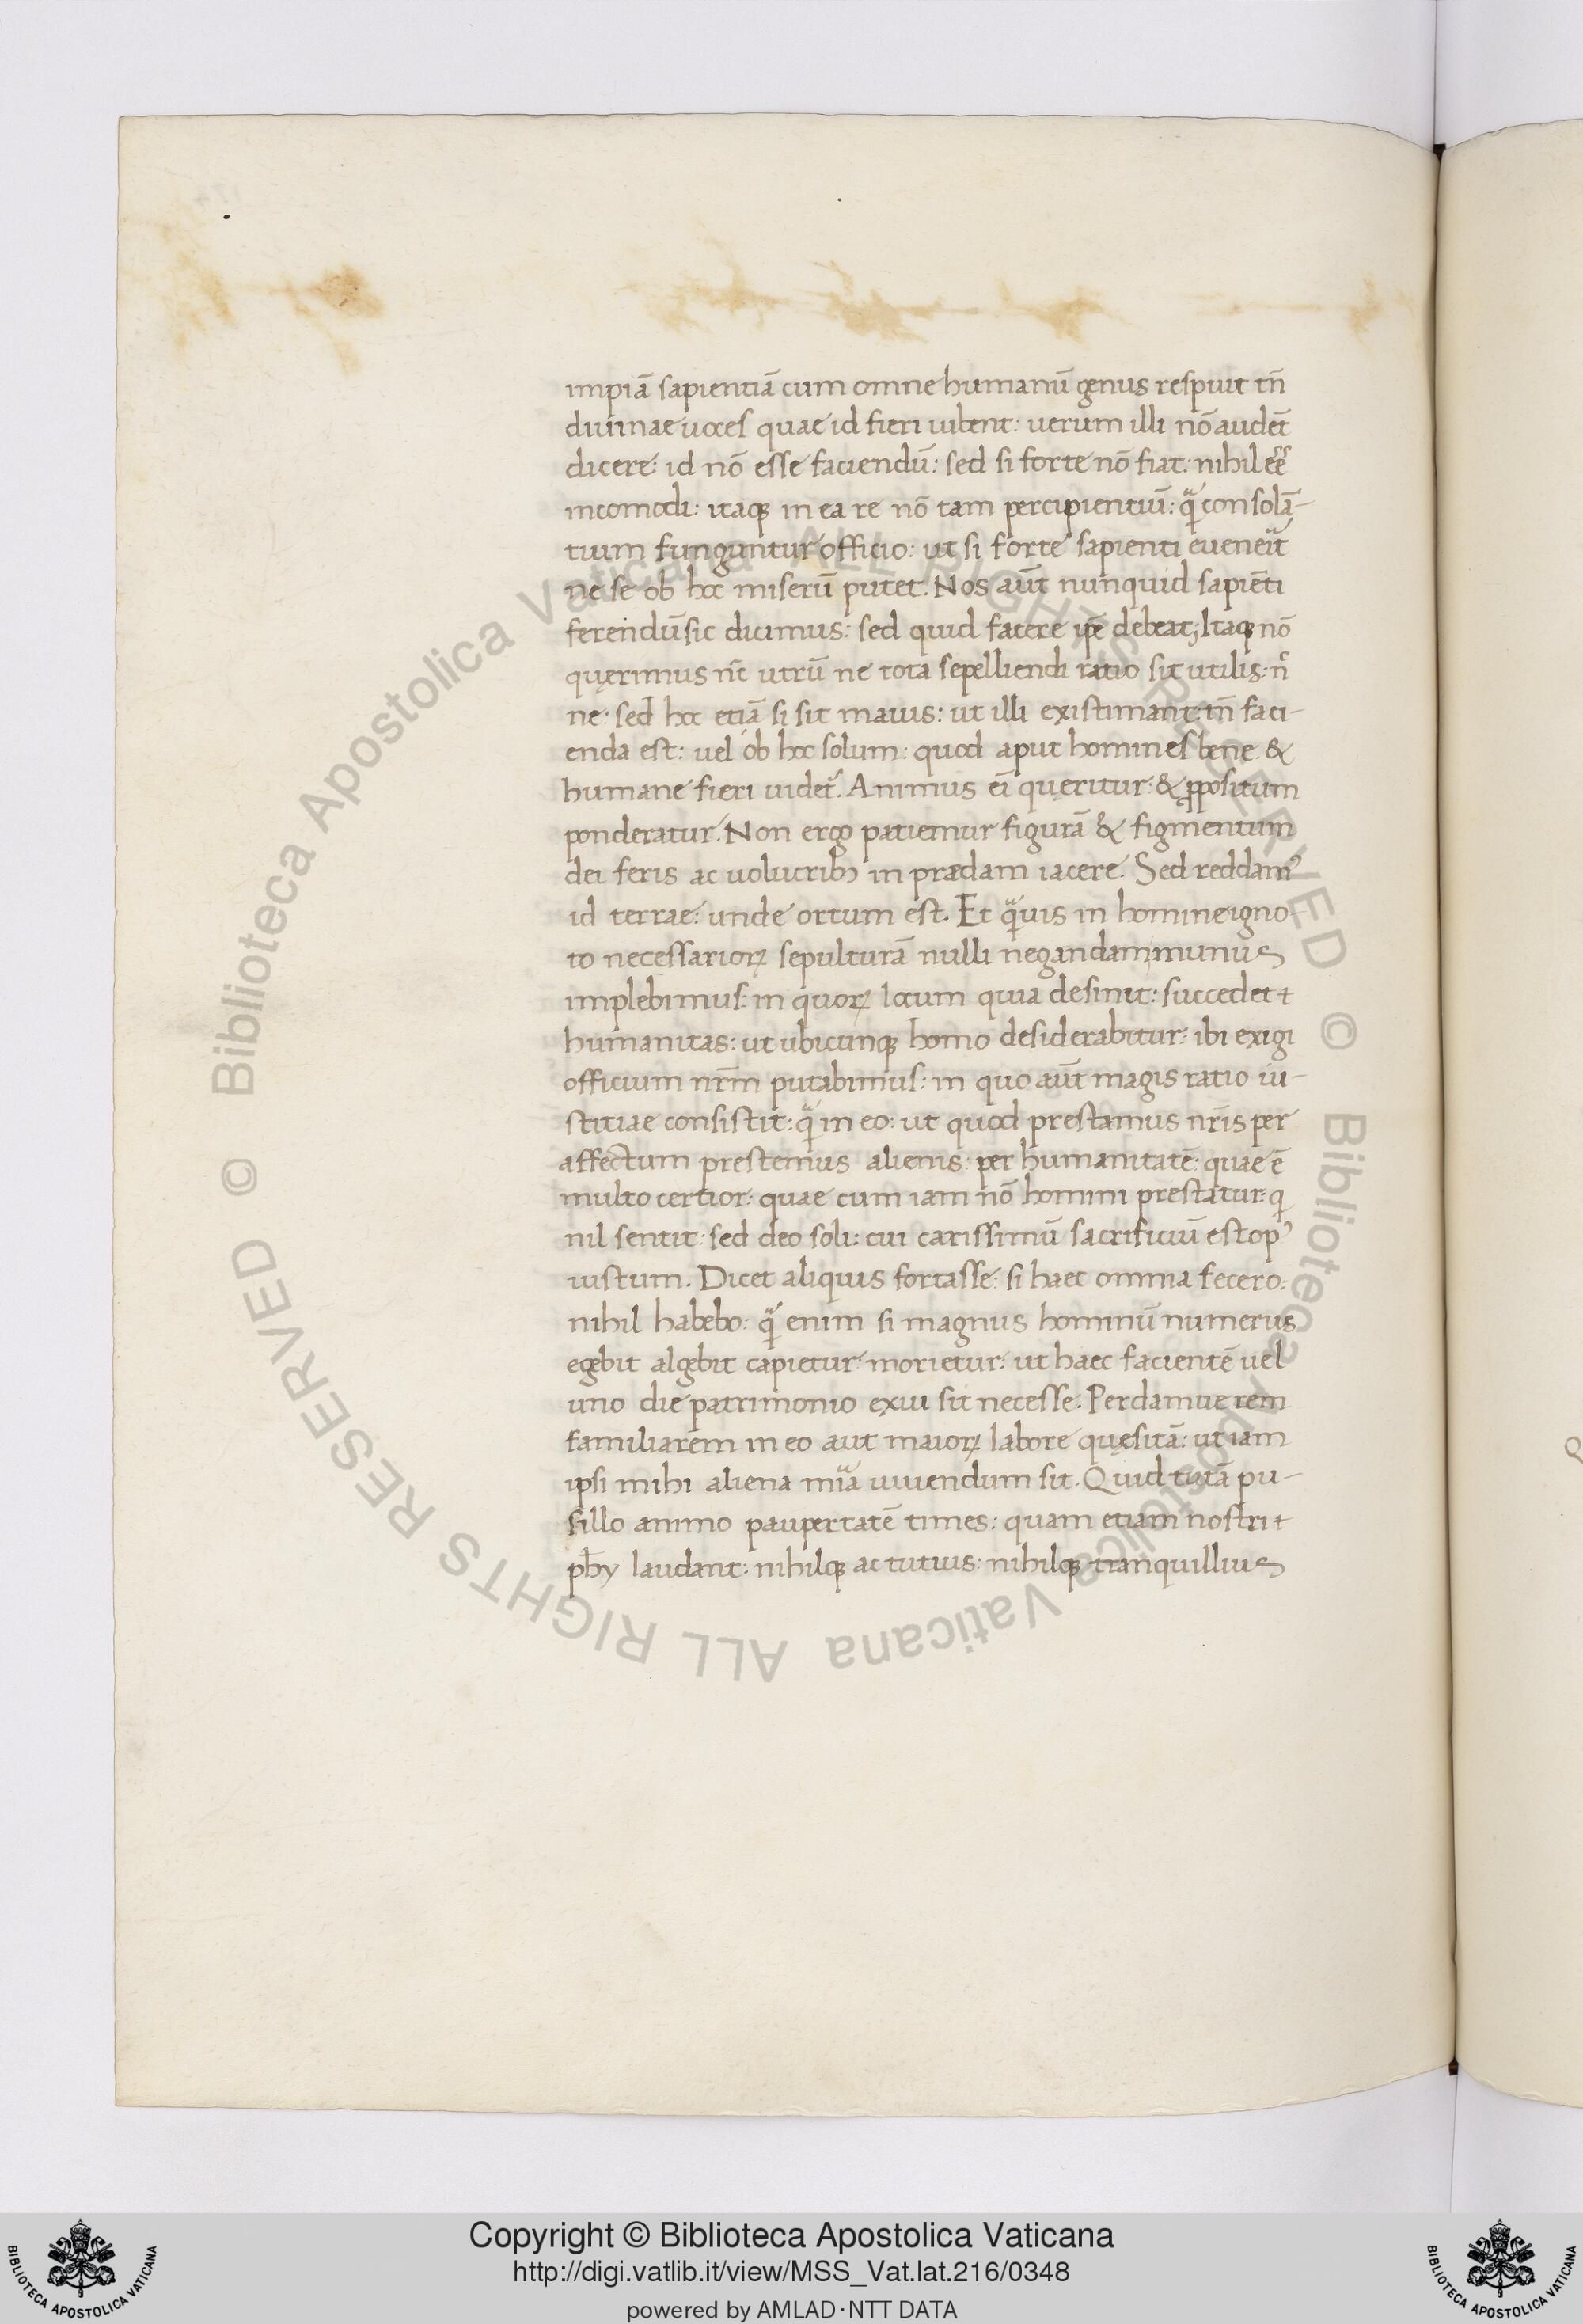 impiā sapientiā cum omne humanū genus respuit tn̄
diuinae uoces quae id fieri iubent: uerum illi nō audēt
dicere: id nō esse faciendū: sed si forte nō fiat: nihil eē
incomodi: itaqꝫ in ea re nō tam percipientiū: qͣ̄ consolā-
tium funguntur officio: ut si forte sapienti eueneͣit
ne se ob hoc miserū putet. Nos aūt nunquid sapiēti
ferendū sic dicimus: sed quid facere ip̄e debeat; Itaqꝫ nō
quęrimus nc̄ utrū ne tota sepelliendi ratio sit utilis: n̄
ne: sed hoc etiā si sit maius: ut illi existimant: tn̄ faci-
enda est: uel ob hoc solum: quod aput homines bene &
humane fieri uidet᷑. Animus eī quęritur: & ꝓpositum
ponderatur. Non ergo patiemur figurā & figmentum
dei feris ac uolucribꝫ in praedam iacere. Sed reddamꝰ
id terrae: unde ortum est. Et qͣ̄uis in homine igno-
to necessarioꝝ sepulturā nulli negandam munus
implebimus: in quoꝝ locum quia desinit: succedet
humanitas: ut ubicunqꝫ homo desiderabitur: ibi exigi
officium nr̄m putabimus: in quo aūt magis ratio iu-
stitiae consistit: qͣ̄ in eo: ut quod prestamus nr̄is per
affectum prestemus alienis: per humanitatē: quae ē
multo certior: quae cum iam nō homini prestatur: q
nil sentit: sed deo soli: cui carissimū sacrificiū est opꝰ
iustum. Dicet aliquis fortasse: si haec omnia fecero:
nihil habebo: qͣ̄ enim si magnus hominū numerus
egebit algebit capietur: morietur: ut haec facientē uel
uno die patrimonio exui sit necesse. Perdamue rem
familiarem in eo aut maioꝝ labore quęsitā: ut iam
ipsi mihi aliena mīa uiuendum sit. Quid tutā pu-
sillo animo paupertatē times: quam etiam nostri
phy laudant: nihilqꝫ ac tutius: nihilqꝫ tranquillius
© Biblioteca Apostolica Vaticana ALL RIGHTS RESERVED © Biblioteca Apostolica Vaticana ALL RIGHTS RESERVED
Copyright © Biblioteca Apostolica Vaticana
http://digi.vatlib.it/view/MSS_Vat.lat.216/0348
powered by AMLAD·NTT DATA
BIBLIOTECA APOSTOLICA VATICANA
BIBLIOTECA APOSTOLICA VATICANA